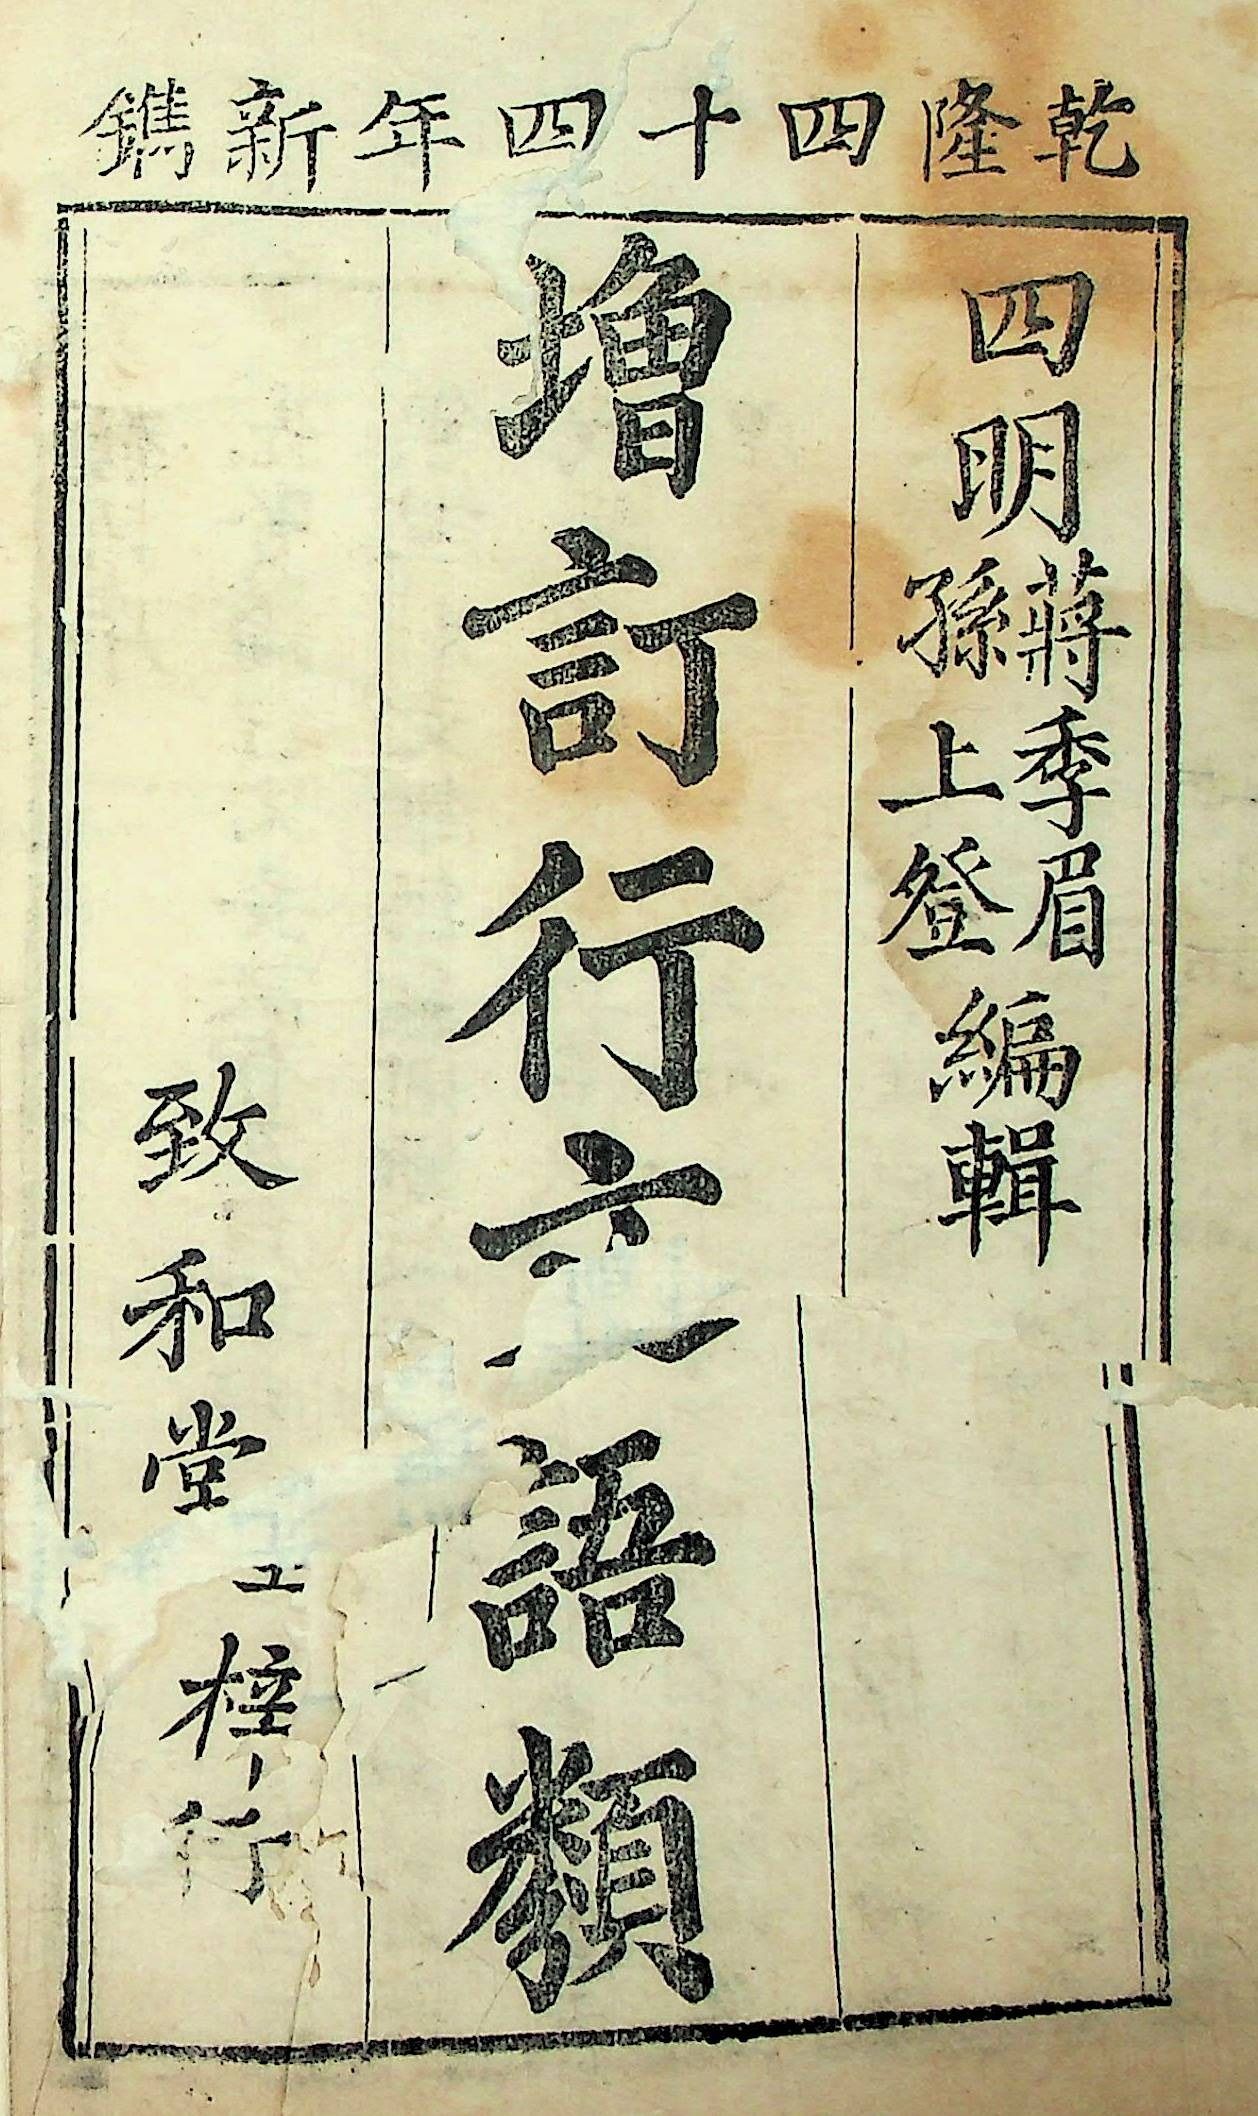 乾隆四十四年新鐫
四明
蔣季眉
孫上登
編輯
增訂行文語類
致和堂
梓行